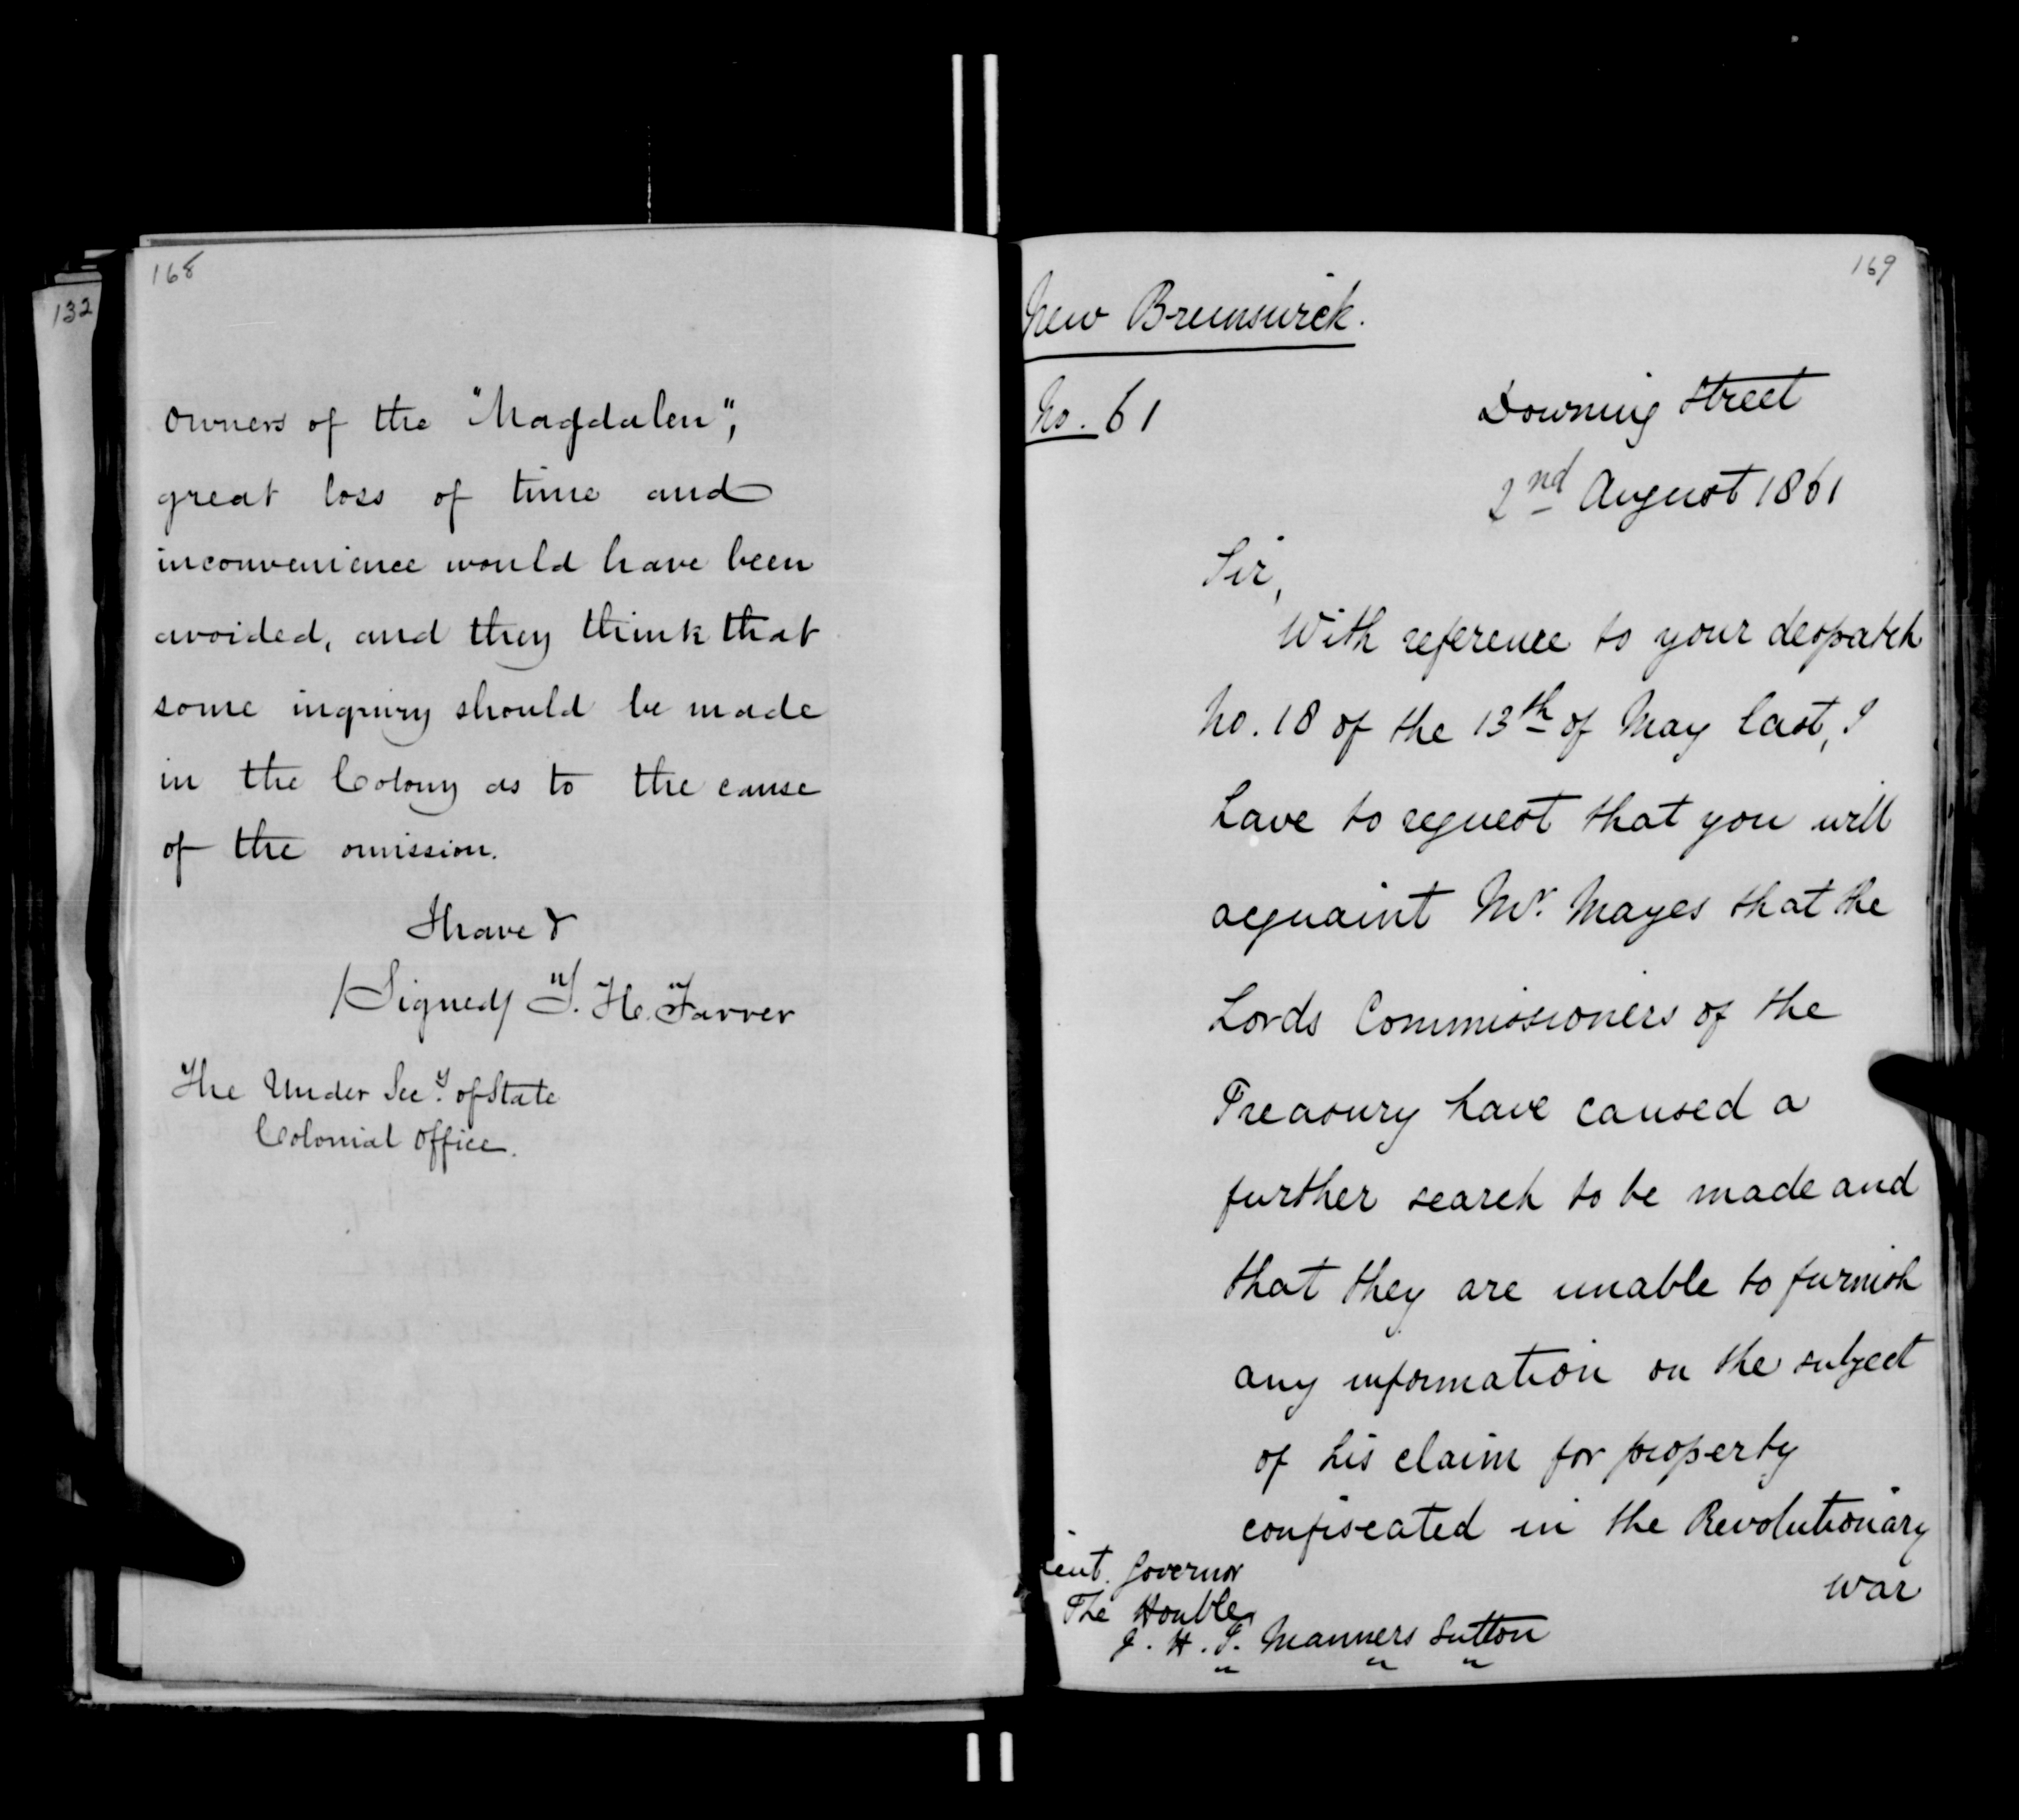 168
132
owners of the "Magdalen",
great loss of time and
inconvenience would have been
avoided, and they think that
some inquiry should be made
in the Colony as to the cause
of the omission.
I have &
(Signed) "T. H. Farrer"
The Under Secy. of State
Colonial Office.
169
New Brunswick.
No. 61
Downing Street
2nd August 1861
Sir,
With reference to your despatch
No. 18 of the 13th of May last, I
have to request that you will
acquaint Mr. Mayes that the
Lords Commissioners of the
Treasury have caused a
further search to be made and
that they are unable to furnish
any information on the subject
of his claim for property
confiscated in the Revolutionary
War
ieut. Governor
The Honble.
J. H. T. Manners Sutton